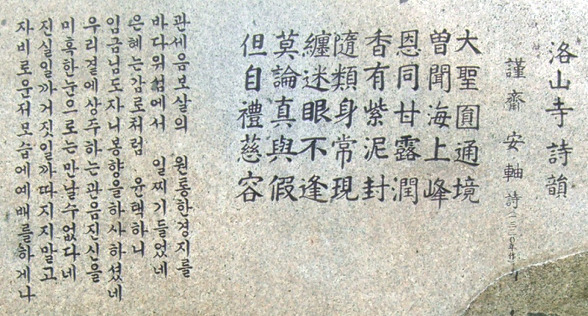 洛山寺詩韻
謹齋 安軸 詩
大聖圓通境
曽聞海上峰
恩同甘露潤
香有紫泥封
隨類身常現
纏迷眼不逢
莫論真與假
但自禮慈容
관세음보살의 원통한경지를
바다위섬에서 일찌기들었네
은혜는감로처럼 윤택하니
임금님도자니봉향을하사하셨네
우리곁에상주하는관음진신을
미혹한눈으로는만날수없다네
진실일까거짓일까따지지말고
자비로운저모습에예배를하게나